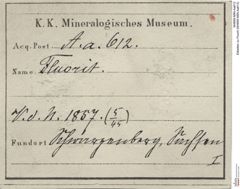 K. K. Mineralogisches Museum.
Acq. Post A. a. 612.
Name Fluorit.
V. d. N. 1857. (5/44)
Fundort Schwarzenberg, Sachsen
I